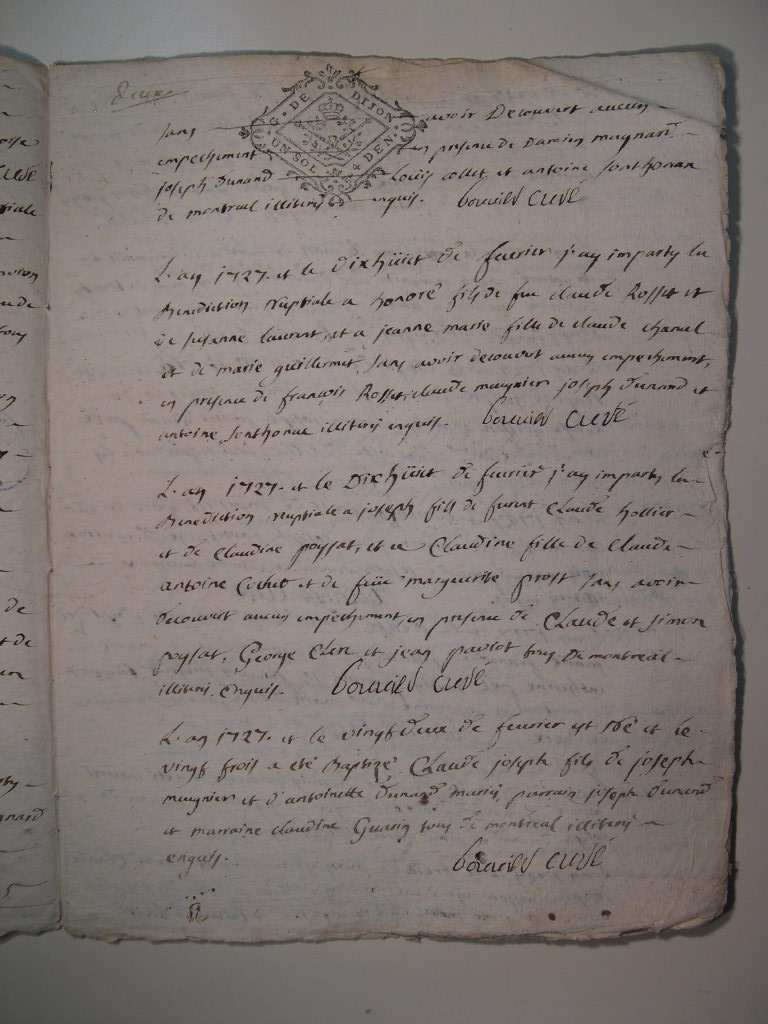 Deux
G. DE DIJON
UN SOL 4 DEN.
sans avoir Decouvert aucun
empechement en presence de Damien maignard
joseph Dunand Louis collet et antoine sonthonax
de montreal illiteris enquis. bouvier curé
L'an 1727. et le Dixhüit de fuvrier j'ay imparty la
Benediction nuptiale a honoré fils de feu claude Rosset et
de susanne laurent, et a jeanne marie fille de claude
et de marie guillermet, sans avoir decouvert aucun empechement,
en presence de françois Rosset, claude mugnier joseph Dunand et
antoine sonthonax illiteris enquis. curé
L'an 1727. et le Dixhüit de fuvrier j'ay imparty la
Benediction nuptiale a joseph fils de Claude hollier
et de claudine poysat, et a Claudine fille de claude
antoine Cochet et de feüe marguerite prost sans avoir
decouvert aucun empechement, en presence de CLaude et simon
poysat, George Clerc et jean paulot tous De montreal
illiteris enquis. curé
L'an 1727. et le vingt deux de fuvrier est né et le
vingt trois a eté Baptizé CLaude joseph fils de joseph
mugnier et d'antoinette Dunand mariés, parrain joseph Dunand
et marraine claudine Guerin tous de montreal illiteris
enquis.
curé